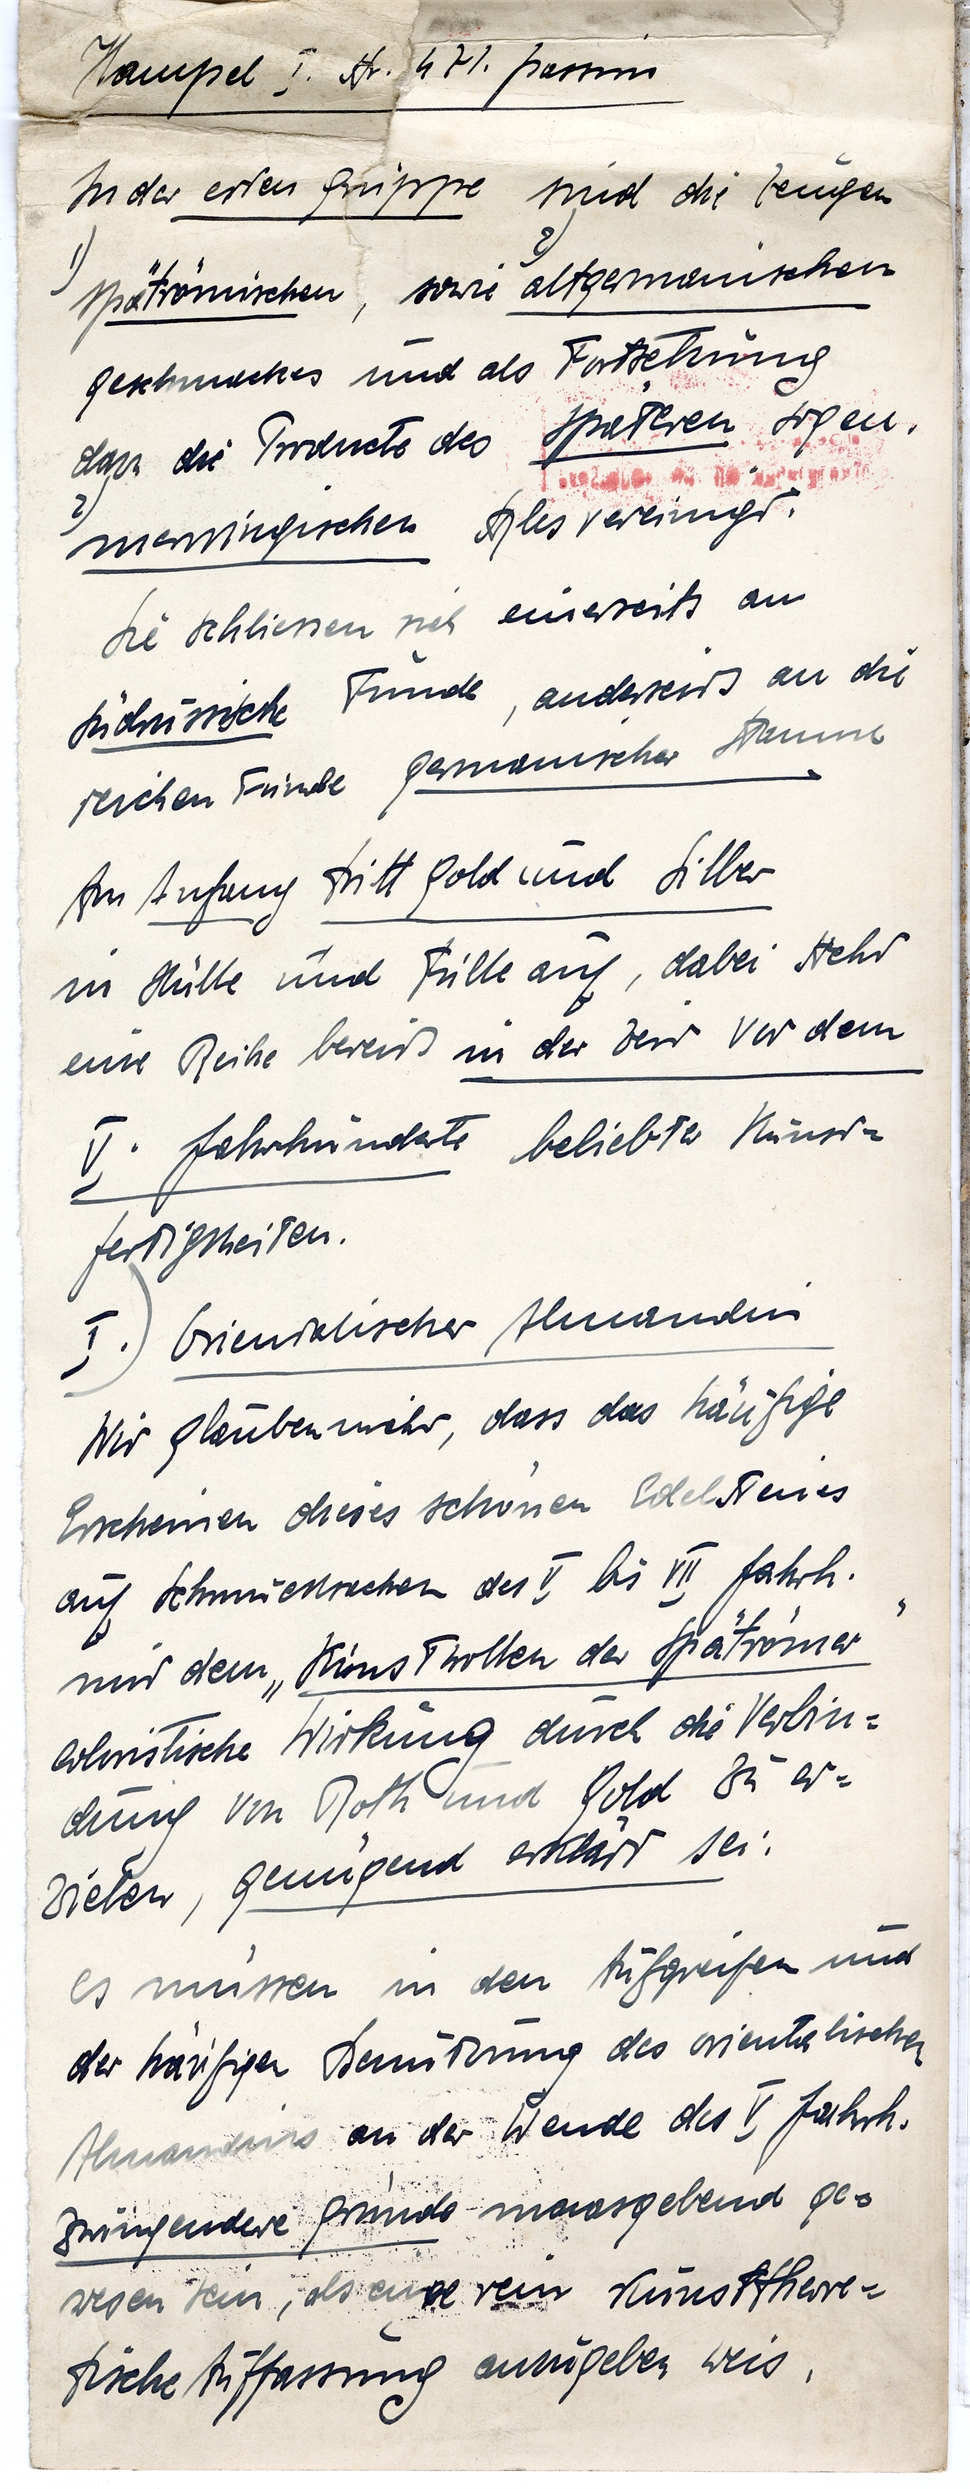 Hampel I. St. 471. passim
In der ersten Gruppe sind die Zeugen
1) spätrömischen, sowie 2) altgermanischen
Geschmackes und als Fortsetzung
dazu die Producte des späteren sogen.
2) merowingischen Styles vereinigt.
Sie schliessen sich einerseits an
südrussische Funde, anderseits an die
reichen Funde germanischer Stämme
Am Anfang tritt Gold und Silber
in Hülle und Fülle auf, dabei steht
eine Reihe bereits in der Zeit vor dem
V. Jahrhunderte beliebter Kunst=
fertigkeiten.
I.) Orientalischer Almandin
Wir glauben nicht, dass das häufige
Erscheinen dieses schönen Edelsteines
auf Schmucksachen des V bis VII Jahrh.
mit dem „Kunstwollen der Spätrömer"
coloristische Wirkung durch die Verbin=
dung von Roth und Gold zu er=
zielen, genügend erklärt sei.
Es müssen in den Aufgreifen und
der häufigen Benützung des orientalischen
Almandins an der Wende des V Jahrh.
zwingendere Gründe massgebend ge=
wesen sein, als eine rein Kunsttheore=
tische Auffassung anzugeben weis.